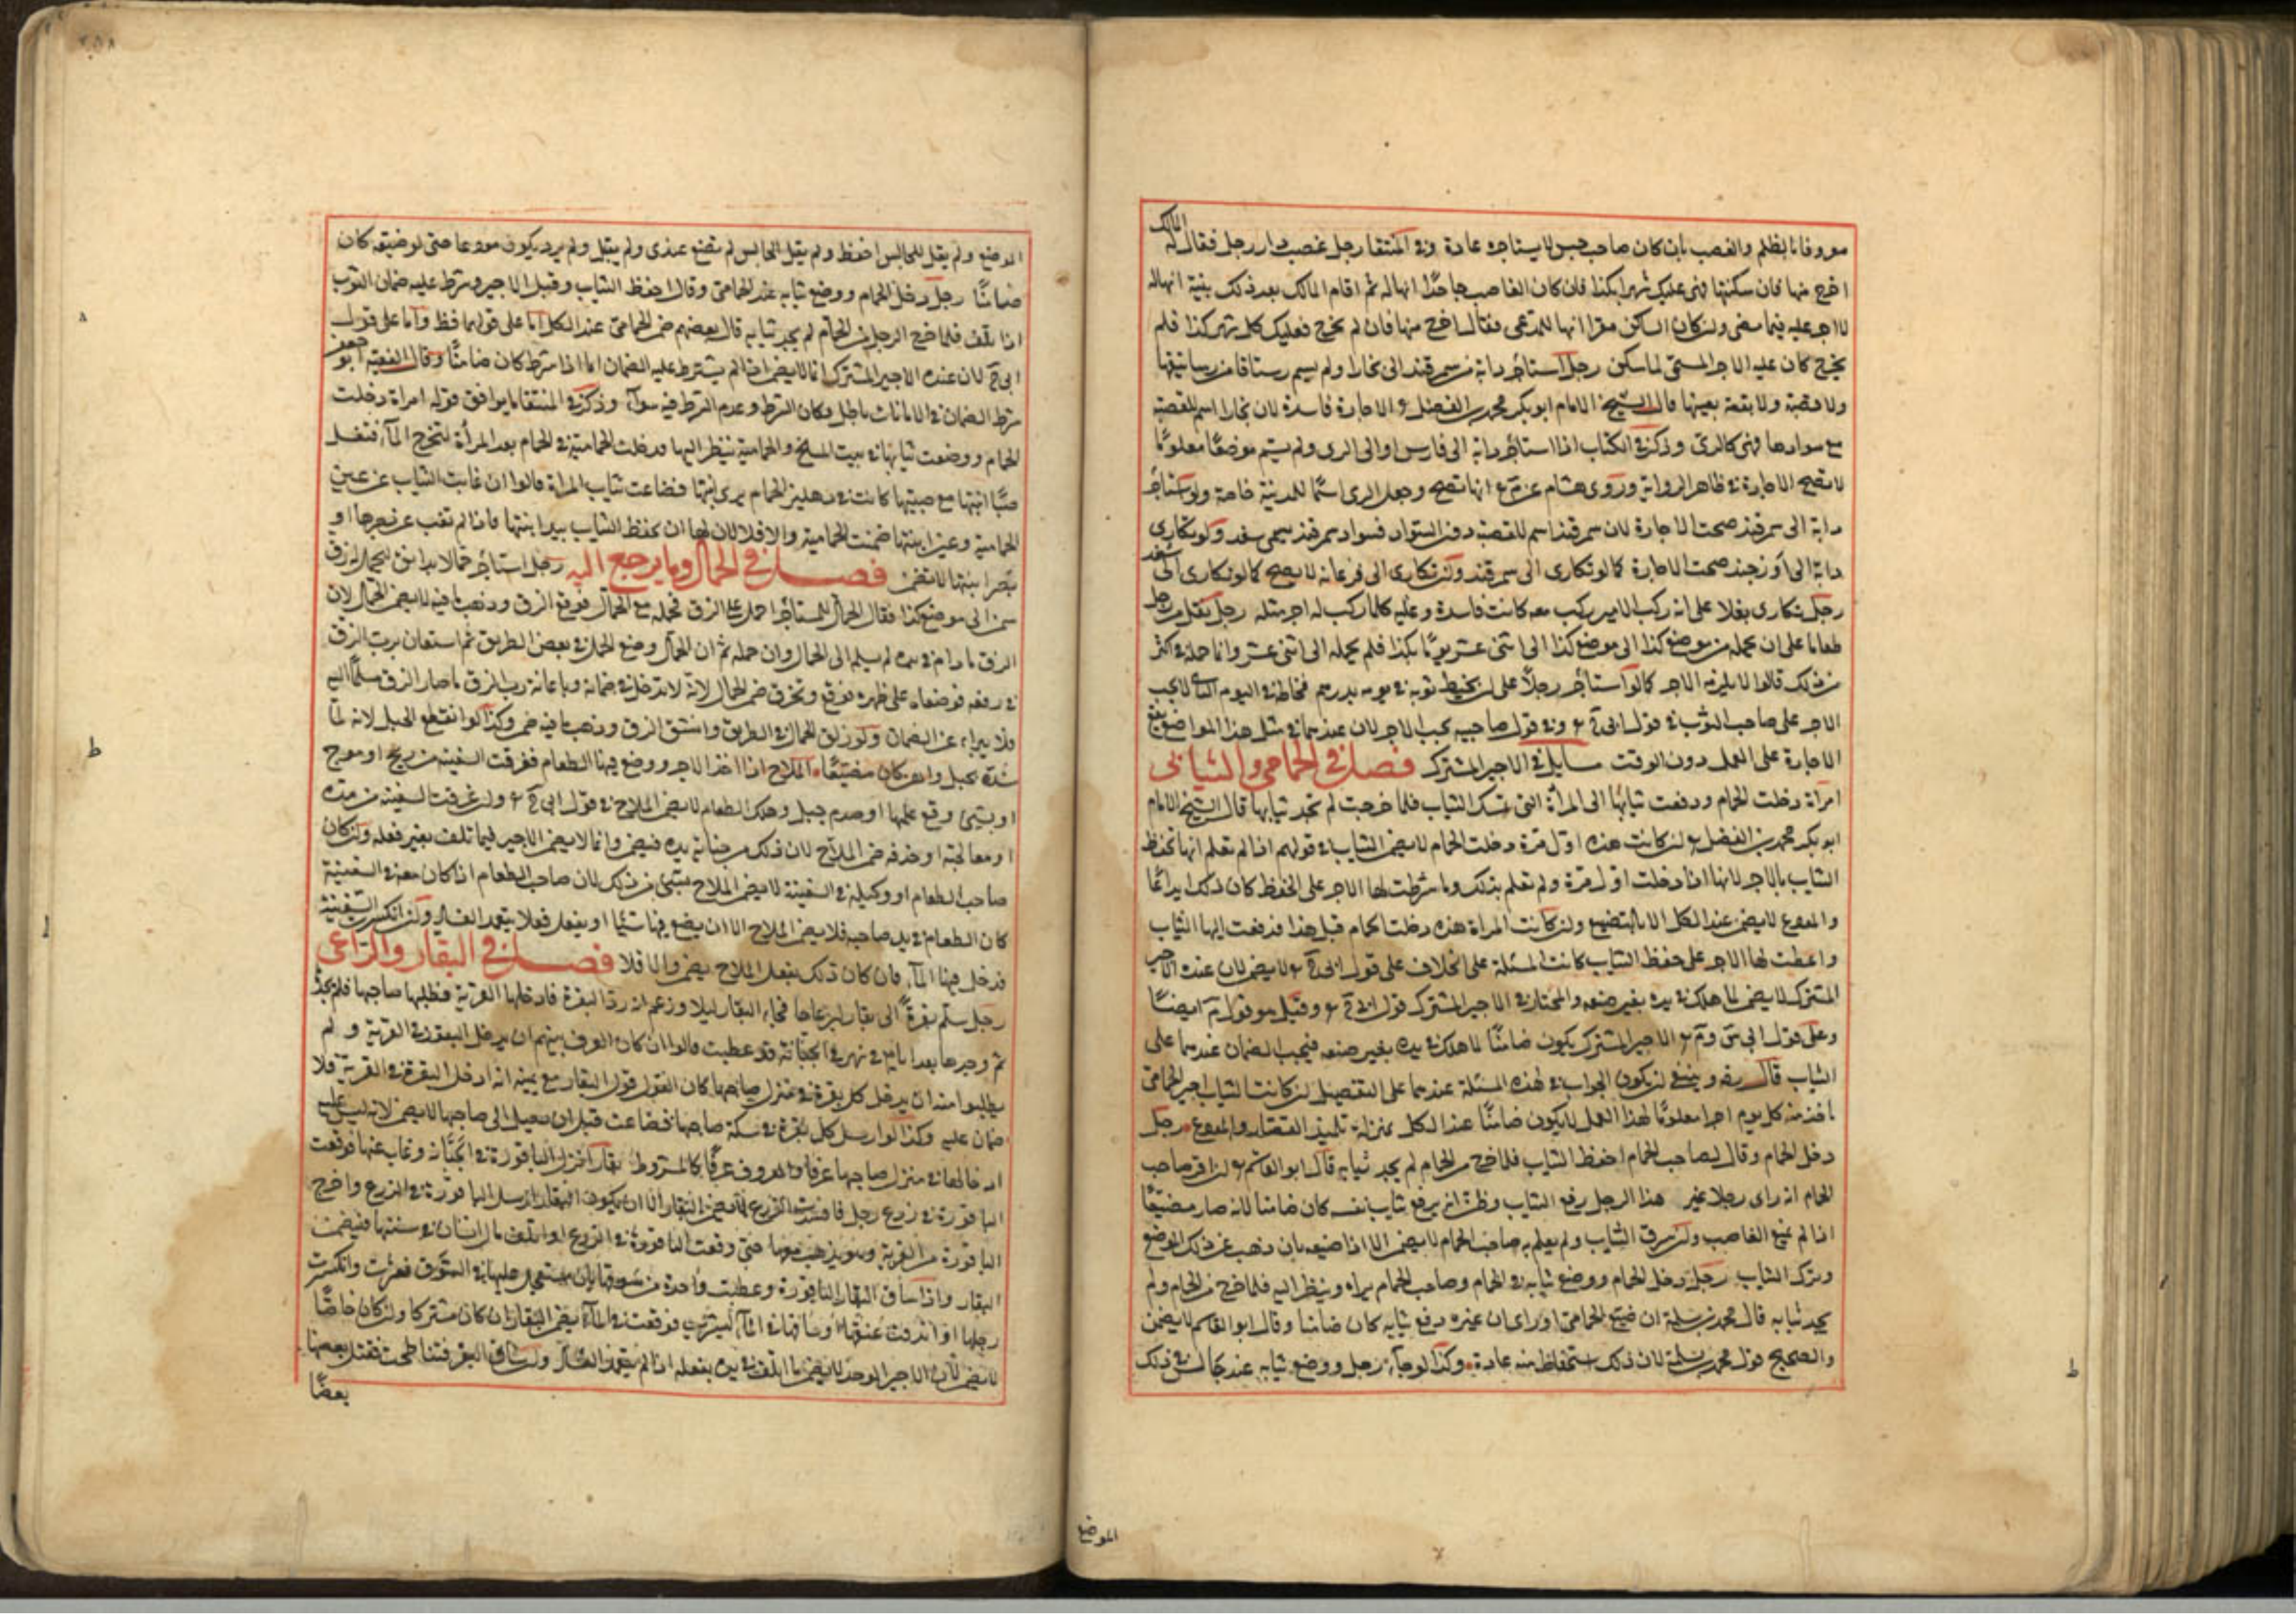 معروفا بالظلم والغصب بان كان صاحب حبس لا يستاجره عادة وفي المنتقا رجل غصب دار رجل فقال له المالك
اخرج منها فان سكنتها فهى عليك شهرا بكذا فان كان الغاصب جاحدًا انها له ثم اقام المالك بعد ذلك بينة انها له
لا اجر عليه فيما مضى ولو كان الساكن مقرا انها للمدعى فقال اخرج منها فان لم تخرج فعليك كل شهر كذا فلم
يخرج كان عليه الاجر المسمى لما سكن رجل استأجر دابة من سمرقند الى بخارا ولم يسم رستاقا من رساتيقها
ولا قصبة ولا بقعة بعينها قال الشيخ الامام ابو بكر محمد بن الفضل الاجارة فاسدة لان بخارا اسم للقصبة
مع سوادها فهى كالرى وذكر في الكتاب اذا استأجر دابة الى فارس او الى الرى ولم يسم موضعًا معلومًا
لا تصح الاجارة في ظاهر الرواية وروى هشام عن انها تصح وجعل الرى اسمًا للمدينة خاصة ولو استأجر
دابة الى سمرقند صحت الاجارة لان سمرقند اسم للقصبة دون السواد فسواد سمرقند يسمى سغد ولو تكارى
دابة الى اوزجند صحت الاجارة كما لو تكارى الى سمرقند ولو تكارى الى فرغانة لا يصح كما لو تكارى الى سغد
رجل تكارى بغلا على انه ركب الامير يركب معه كانت فاسدة وعليه كلما ركب له اجر مثله رجل تقبل من رجل
طعاما على ان يحمله من موضع كذا الى موضع كذا الى اثنى عشر يومًا بكذا فلم يحمله الى اثنى عشر وانما حمله في اكثر
من ذلك قالوا لا يلزمه الاجر كما لو استأجر رجلاً على ان يخيط ثوبه في يومه بدرهم فخاطه في اليوم الثانى لا يجب
الاجر على صاحب الثوب في قول ابى وفي قول صاحبيه يجب الاجر لان عندهما في مثل هذا المواضع يقع
الاجارة على العمل دون الوقت مسايل في الاجير المشترك فصل في الحمامى والثيابى
امرأة دخلت الحمام ودفعت ثيابها الى المرأة التى تمسك الثياب فلما خرجت لم تجد ثيابها قال الشيخ الامام
ابو بكر محمد بن الفضل ان كانت هذه اول مرة دخلت الحمام لا يضمن الثيابى في قولهم اذا لم تعلم انها تحفظ
الثياب بالاجر لانها اذا دخلت اول مرة ولم تعلم بذلك وما شرطت لها الاجر على الحفظ كان ذلك ايداعًا
والمودع لا يضمن عند الكل الا بالتضييع ولو كانت المرأة هذه دخلت الحمام قبل هذا فدفعت اليها الثياب
واعطت لها الاجر على حفظ الثياب كانت المسئلة على الخلاف على قول لا يضمن لان عنده الاجير
المشترك لا يضمن لما هلك في يده بغير صنعه والمختار في الاجير المشترك قول وقيل هو قول ايضًا
وعلى قول الاجير المشترك يكون ضامنًا لما هلك في يده بغير صنعه فيجب الضمان عندهما على
الثيابى قال وينبغى ان يكون الجواب في هذه المسئلة عندهما على التفصيل ان كانت الثيابى اجير الحمامى
ياخذ منه كل يوم اجرا معلومًا لهذا العمل لا يكون ضامنًا عند الكل بمنزلة تلميذ القصار والمودع رجل
دخل الحمام وقال لصاحب الحمام احفظ الثياب فلما خرج من الحمام لم يجد ثيابه قال ابو القاسم ان اقر صاحب
الحمام انه راى رجلا غير هذا الرجل رفع الثياب وظن انه يرفع ثياب نفسه كان ضامنا لانه صار مضيعًا
اذا لم يمنع الغاصب وان سرق الثياب ولم يعلم به صاحب الحمام لا يضمن الا اذا ضيعه بان ذهب عن ذلك الموضع
وترك الثياب رجل دخل الحمام ووضع ثيابه في الحمام وصاحب الحمام يراه وينظر اليه فلما خرج من الحمام ولم
يجد ثيابه قال محمد بن سلمة ان ضيع الحمامى او راى ان غيره رفع ثيابه كان ضامنا وقال ابو القاسم لا يضمن
والصحيح قول محمد بن سلمة لان ذلك استحفاظ منه عادة وكذا لو جاء رجل ووضع ثيابه عند جالس في ذلك
الموضع
الموضع ولم يقل للجالس احفظ ولم يقل الجالس لم تضع عندى ولم يقبل ولم يرد يكون مودعا حتى لو ضيعه كان
ضامنًا رجل دخل الحمام ووضع ثيابه عند الحمامى وقال احفظ الثياب وقبل الاجير وشرط عليه ضمان الثوب
اذا تلف فلما خرج الرجل من الحمام لم يجد ثيابه قال بعضهم ضمن الحمامى عند الكل اما على قولهما فظ واما على قول
ابى لان عنده الاجير المشترك انما لا يضمن اذا لم يشترط عليه الضمان اما اذا شرط كان ضامنًا وقال الفقيه ابو جعفر
شرط الضمان في الامانات باطل فكان الشرط وعدم الشرط فيه سواء وذكر في المنتقا ما يوافق قوله امراة دخلت
الحمام ووضعت ثيابها في بيت المسلخ والحمامية تنظر اليها ودخلت الحمامية في الحمام بعد المرأة لتخرج الماء فتغسل
ابنتها مع صبيتها كانت في دهليز الحمام يرى ابنتها فضاعت ثياب المراة قالوا ان غابت الثياب عن عين
الحمامية وعين ابنتها ضمنت الحمامية والا فلا لان لها ان تحفظ الثياب بيد ابنتها فاذا لم تغب عن بصرها او
بصر ابنتها لا تضمن فصل في الحمال وما يرجع اليه رجل استأجر حمالا ليحمل له زق
سمن الى موضع كذا فقال الحمال للمستأجر احمل على الزق فحمله مع الحمال فوقع الزق وذهب ما فيه لا يضمن الحمال لان
الزق ما دام في يده لم يسلم الى الحمال وان حمله ثم ان الحمال وضع الحمل في بعض الطريق ثم استعان برب الزق
في رفعه فوضعاه على ظهره فوقع وتخرق ضمن الحمال لانه لا تدخل في ضمانه وباعانة رب الزق ما صار الزق مسلمًا اليه
فلا يبراء عن الضمان ولو زلق الحمال في الطريق وانشق الزق وذهب ما فيه ضمن وكذا لو انقطع الحبل لانه لما
شده بحبل واهى كان مضيعًا الملاح اذا اخذ الاجر ووضع فيها الطعام فغرقت السفينة من ريح او موج
او بشئ وقع عليها او صدم جبل وهلك الطعام لا يضمن الملاح في قول ابى وان غرقت السفينة من مده
او معالجته او حذفه ضمن الملاح لان ذلك من جناية يده فيضمن وانما لا يضمن الاجير فيما تلف بغير فعله ولو كان
صاحب الطعام او وكيله في السفينة لا يضمن الملاح بشئ من ذلك لان صاحب الطعام اذا كان معه في السفينة
كان الطعام في يد صاحبه فلا يضمن الملاح الا ان يضع فيها شيئا او يفعل فعلا يتعمد الفساد ولو انكسرت السفينة
فدخل فيها الماء فان كان ذلك بفعل الملاح يضمن والا فلا فصل في البقار والراعى
رجل سلم بقرةً الى بقار ليرعاها فجاء البقار ليلا وزعم انه رد البقرة فادخلها القرية فطلبها صاحبها فلم يجد
ثم وجدها بعد ايام في نهر في الجبانة قد عطبت قالوا ان كان العرف بينهم ان يدخل البقور في القرية ولم
يطلبوا منه ان يدخل كل بقرة في منزل صاحبها كان القول قول البقار مع يمينه انه ادخل البقرة في القرية فلا
ضمان عليه وكذا لو ارسل كل بقرة في سكة صاحبها فضاعت قبل ان تصل الى صاحبها لا يضمن لانه ليس عليه
ادخالها في منزل صاحبها عرفا والمعروف عرفًا كالمشروط بقار انزل الباقورة في الجبانة وغاب عنها فوقعت
الباقورة في زرع رجل فافسدت الزرع لا يضمن البقار الا ان يكون البقار ارسل الباقورة في الزرع واخرج
الباقورة من القرية وهو يذهب معها حتى وقعت الباقورة في الزرع او اتلف مال انسان في سننها فيضمن
البقار واذا ساق البقار الباقورة وعطبت واحدة من سوقها بان عليها في السوق فعثرت وانكسرت
رجلها او اندقت عنقها او ساقها في الماء لتشرب فوقعت في الماء يضمن البقار ان كان مشتركا ولو كان خاصًا
لا يضمن لان الاجير الوحد لا يضمن ما اتلف في يده بفعله اذا لم يتعمد الفساد ولو ساق البقر فتناطحت فقتل بعضها
بعضًا